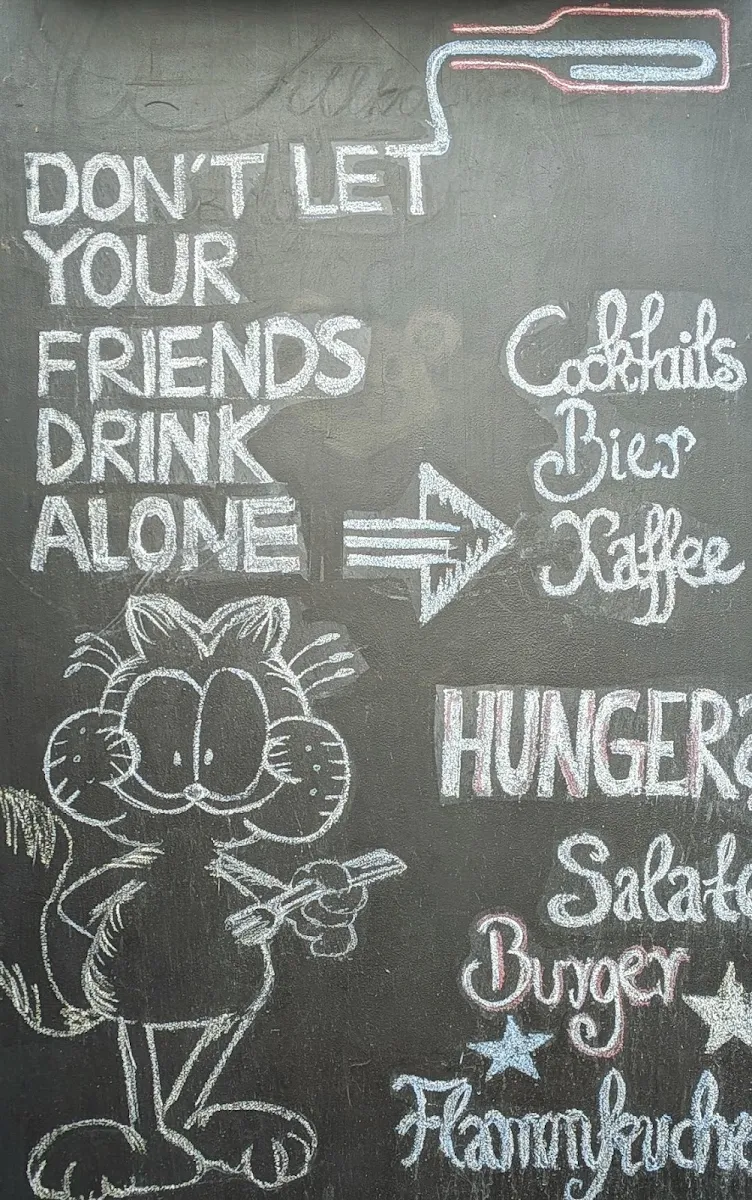 DON'T LET
YOUR
FRIENDS
DRINK
ALONE
Cocktails
Bier
Kaffee
HUNGER?
Salate
Burger
Flammkuche